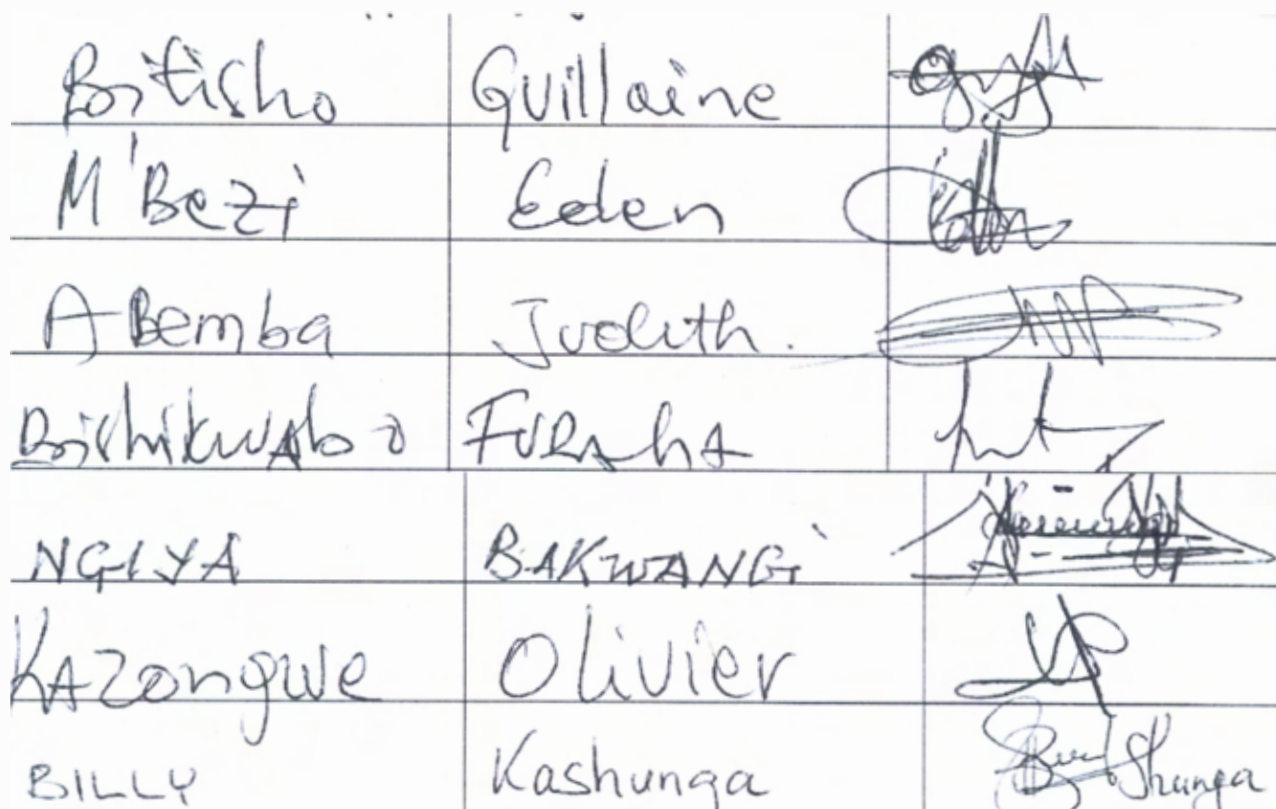 Bitisho Guillaine
M'Bezi Eden
A Bemba Judith.
Bishikwabo FURAHA
NGIYA BAKWANGi
KAZongwe Olivier
BILLY Kashunga Shunga